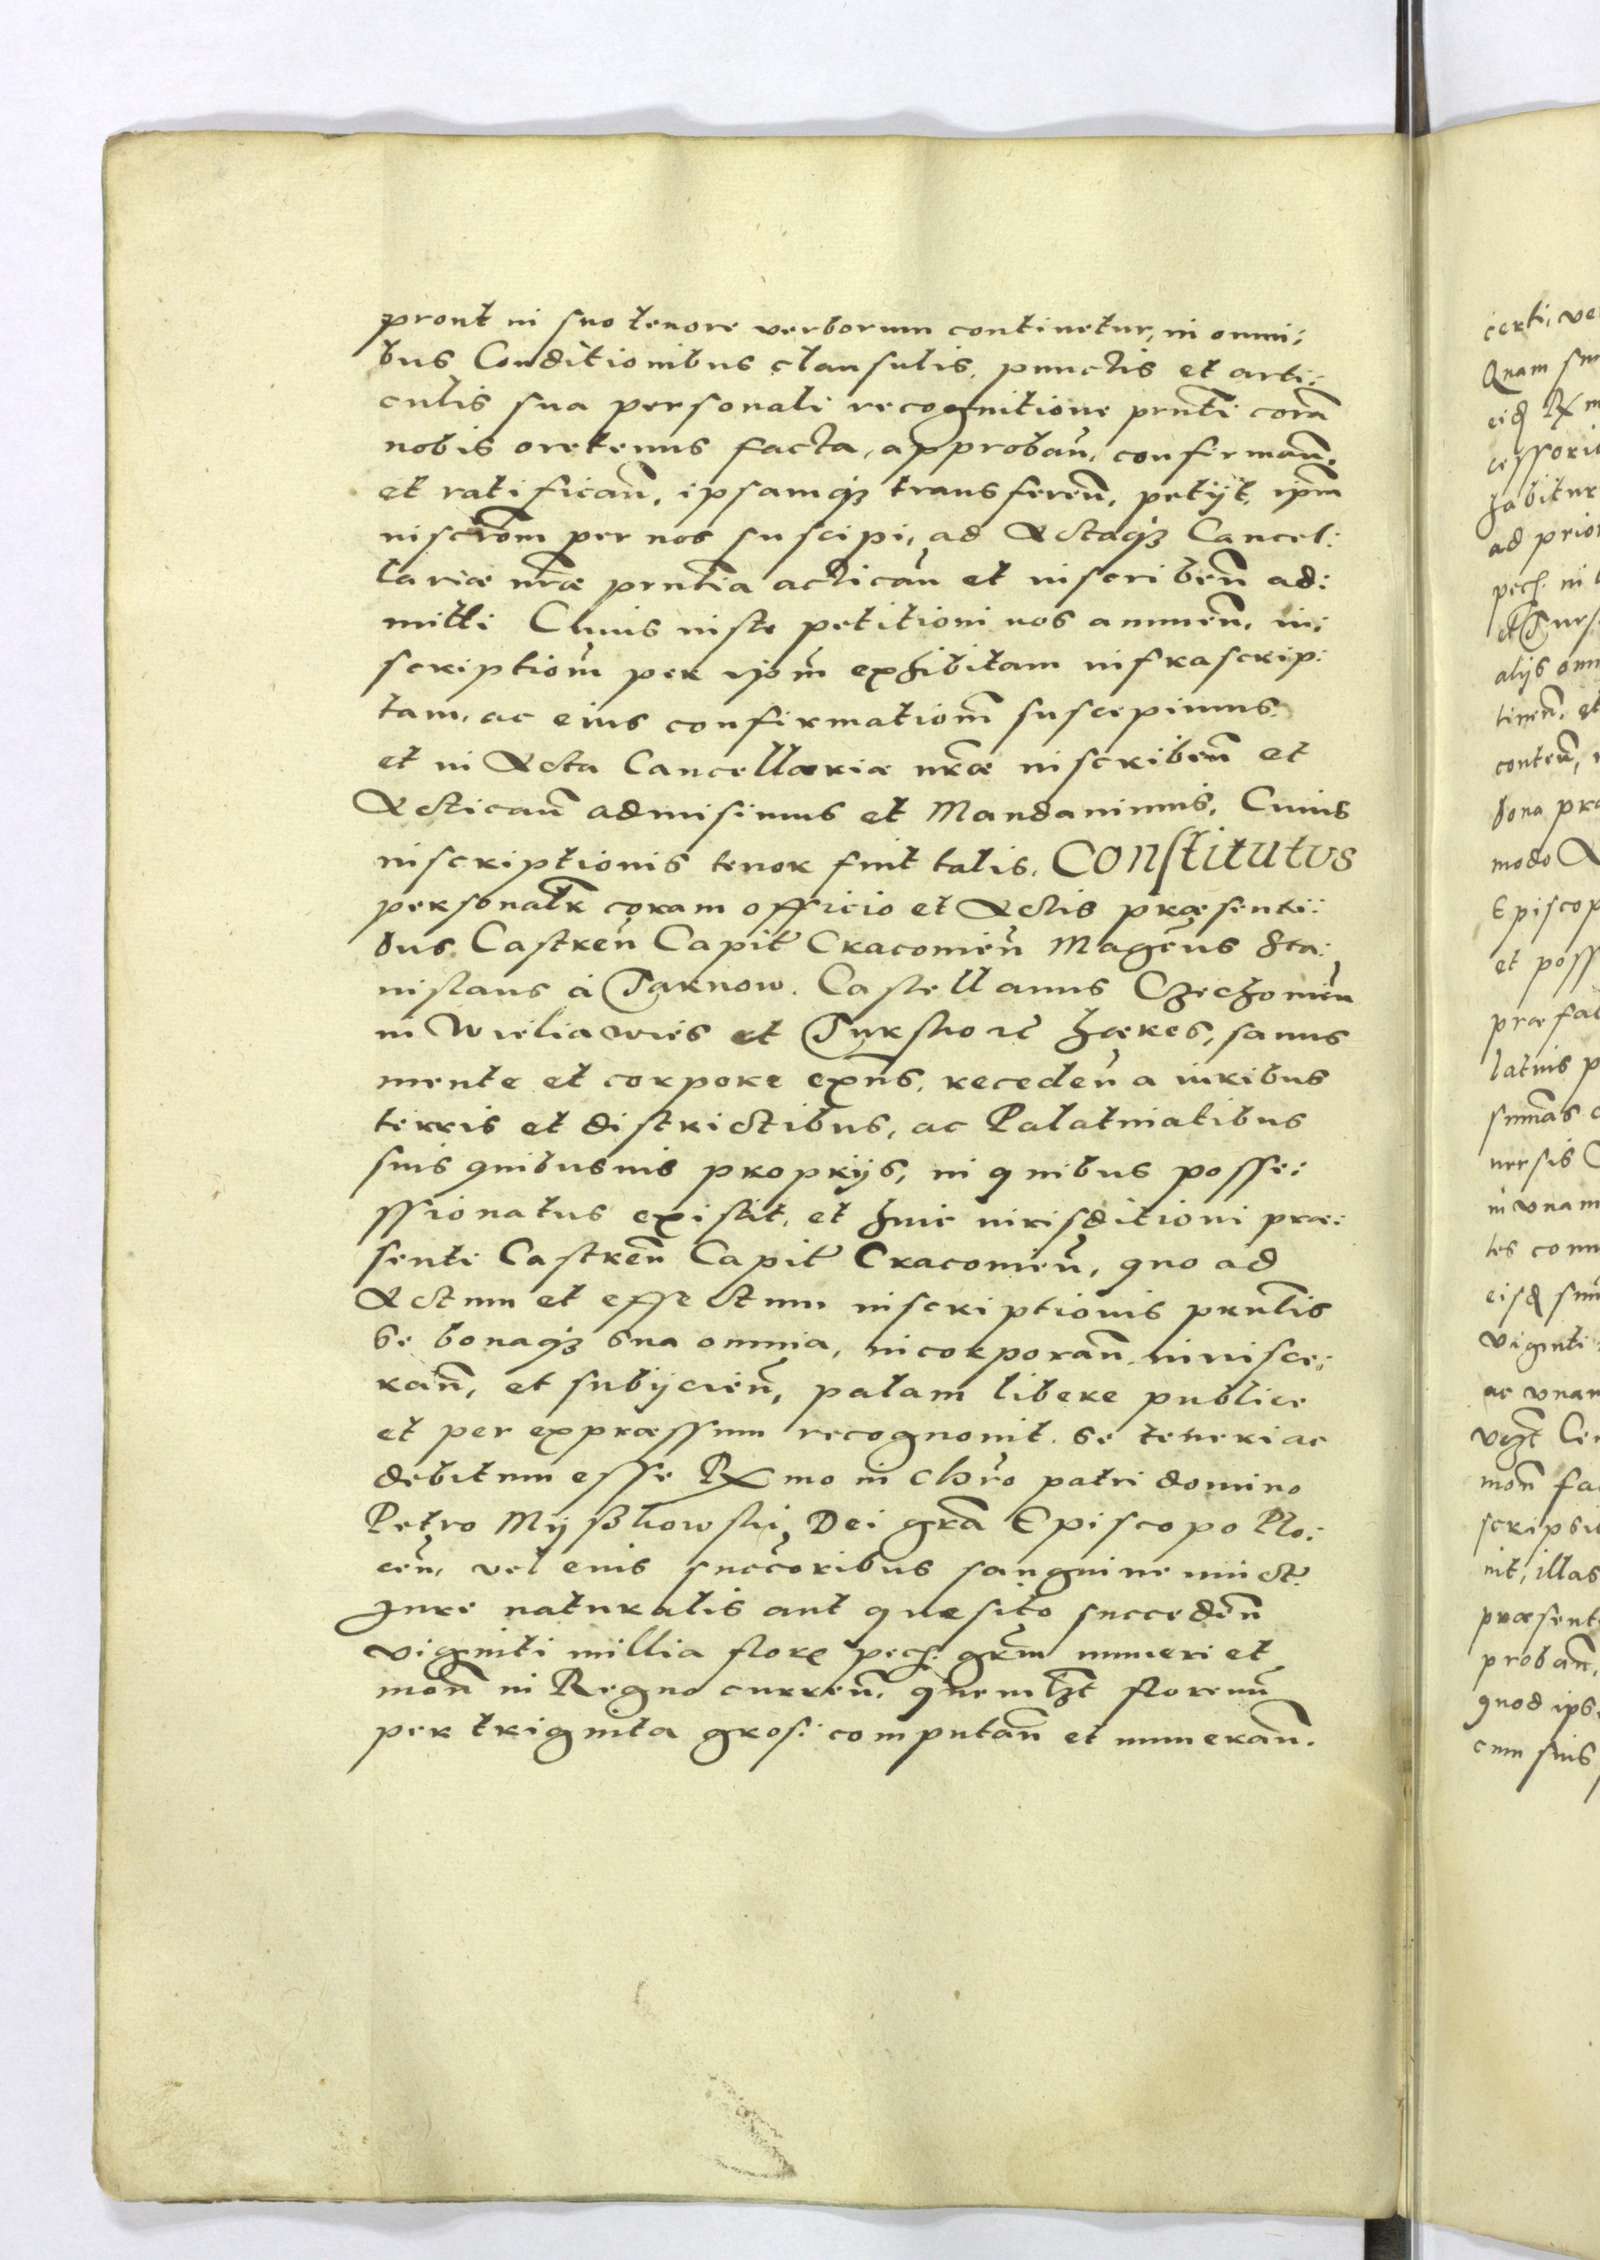 prout in suo tenore verborum continetur, in omni:
bus Conditionibus clausulis, punctis et arti:
culis sua personali recognitione prnti corã
nobis oretenus facta, approbañ, confirmañ,
et ratificañ, ipsamq₃ transfereñ, petijt, ipm
inscrom per nos suscipi, ad Actaq₃ Cancel:
lariæ nræ prntia acticañ et inscribeñ ad:
mitti Cuius iuste petitioni nos annueñ, in:
scriptiom per ipm exhibitam infrascrip:
tam, ac eius confirmatiom suscepimus,
et in Acta Cancellariæ nræ inscribeñ et
Acticañ admisimus et Mandauimus, Cuius
inscriptionis tenor fuit talis. Constitutus
personalr coram officio et Actis præsenti:
bus Castreñ Capit Cracouieñ Magcus Sta:
nislaus à Tarnow. Castellanus Czechouieñ
in Wieliawies et hæres, sanus
mente et corpore exns, recedeñ a iuribus
terris et districtibus, ac Palatinatibus
suis quibusuis proprijs, in quibus posse:
ssionatus existit, et huic iurisditioni præ:
senti Castreñ Capit Cracouieñ, quo ad
Actum et effectum inscriptionis prntis
se bonaq₃ sua omnia, incorporañ inuisce:
rañ, et subijcieñ, palam libere publice
et per expræssum recognouit se teneri ac
debitum esse Rx mo in chro patri domino
Petro Myßkowski Dei gra Episcopo Plo:
ceñ, vel eius succoribus sanguine iunct
Jure naturalis aut quæsito succedeñ
viginti millia flore pecũ: grm numeri et
moñ in Regno curreñ, quemlt floreñ
per triginta gros: computañ et numerañ.
certi, ve
Quam su
eid Rx m
cessorib
habitur
ad prior
pecũ: in
alijs om
tineñ, et
conteñ,
bona pra
modo A
Episcop
et poss
præfat
latius p
summas
uersis C
in vnam
tes com
eisd sum
viginti
ac vnam
moñ fa
scripsit
uit, illas
præsent
probañ,
quod ips
cum suis